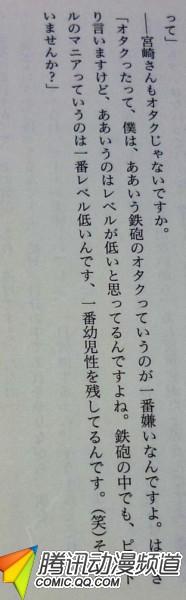 って」
――宮崎さんもオタクじゃないですか。
「オタクったって、僕は、ああいう鉄砲のオタクっていうのが一番嫌いなんですよ。はっき
り言いますけど、ああいうのはレベルが低いと思ってるんですよね。鉄砲の中でも、ピスト
ルのマニアっていうのは一番レベル低いんです、一番幼児性を残してるんです。(笑)そ
いませんか?」
腾讯动漫频道
COMIC.QQ.COM